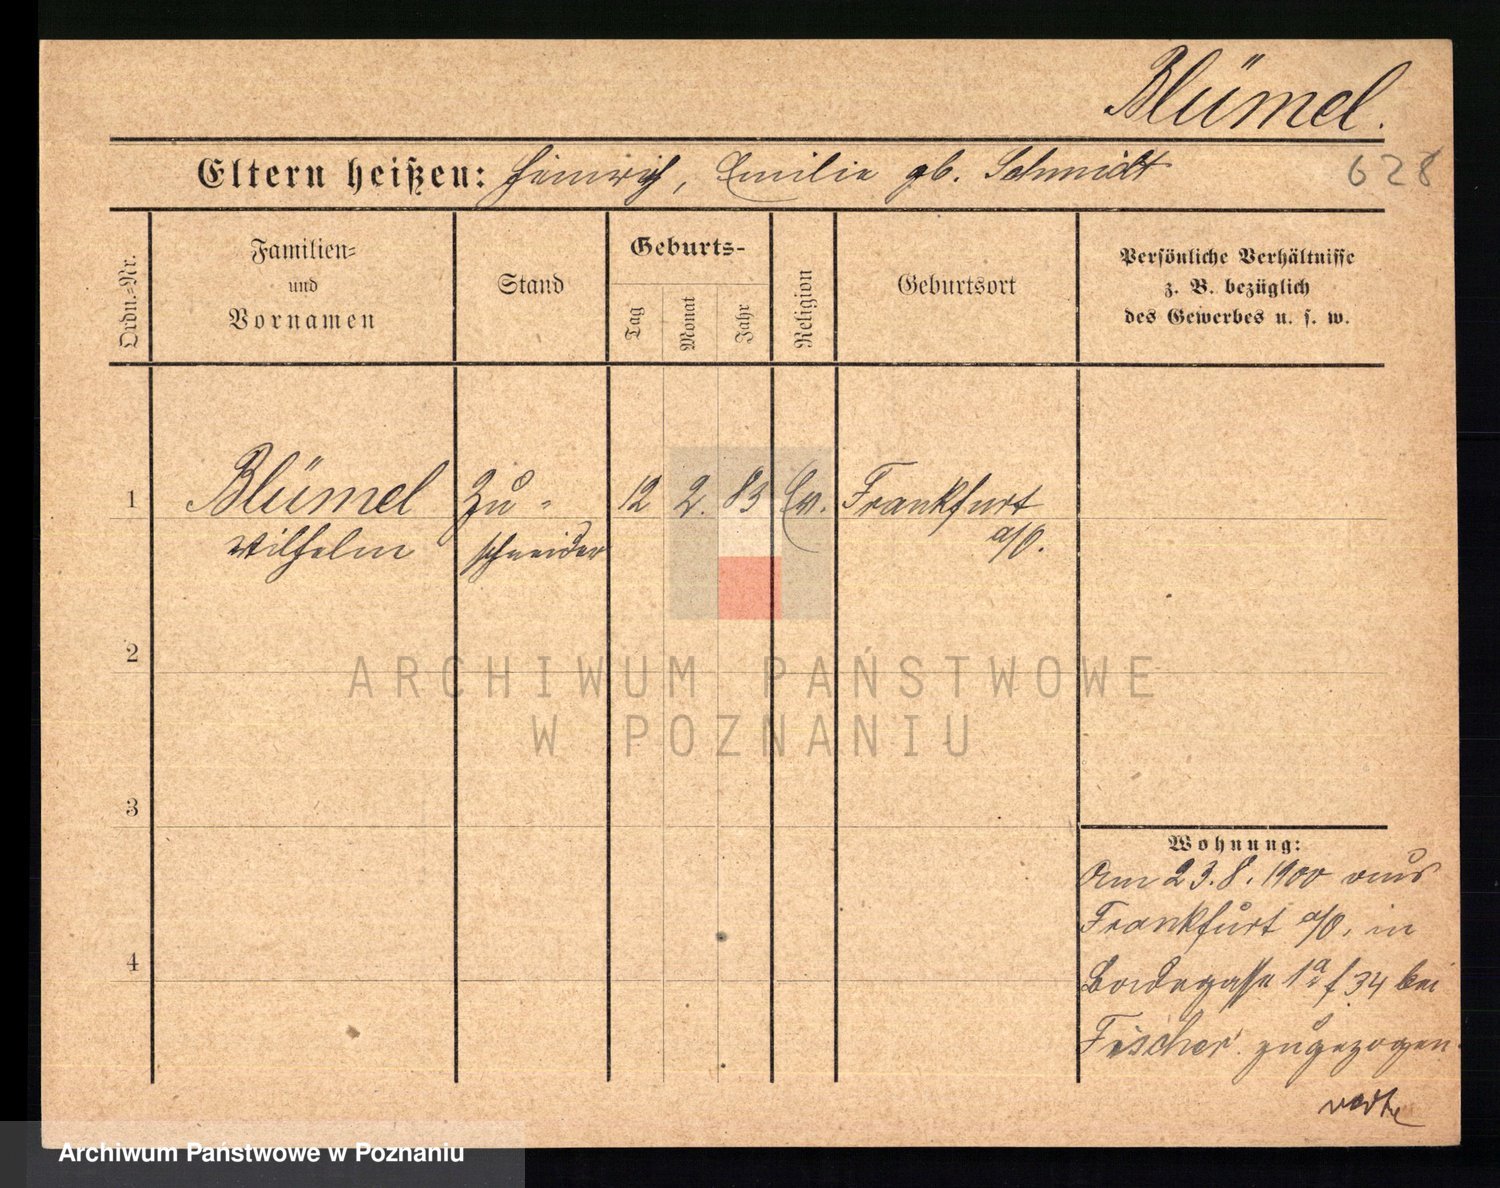 Blümel.
Eltern heißen: Heinrich, Emilie gb. Schmidt
628
Ordn.=Nr.
Familien=
und
Vornamen
Stand
Geburts-
Tag
Monat
Jahr
Religion
Geburtsort
Persönliche Verhältnisse
z. B. bezüglich
des Gewerbes u. s. w.
1
Blümel Zu- 12 2. 83 Ev. Frankfurt
Wilhelm schneider a/O.
2
ARCHIWUM PAŃSTWOWE
W POZNANIU
3
Wohnung:
Am 23.8.1900 aus
Frankfurt a/O. in
4
1a f 34 bei
Fischer zugezogen.
Archiwum Państwowe w Poznaniu